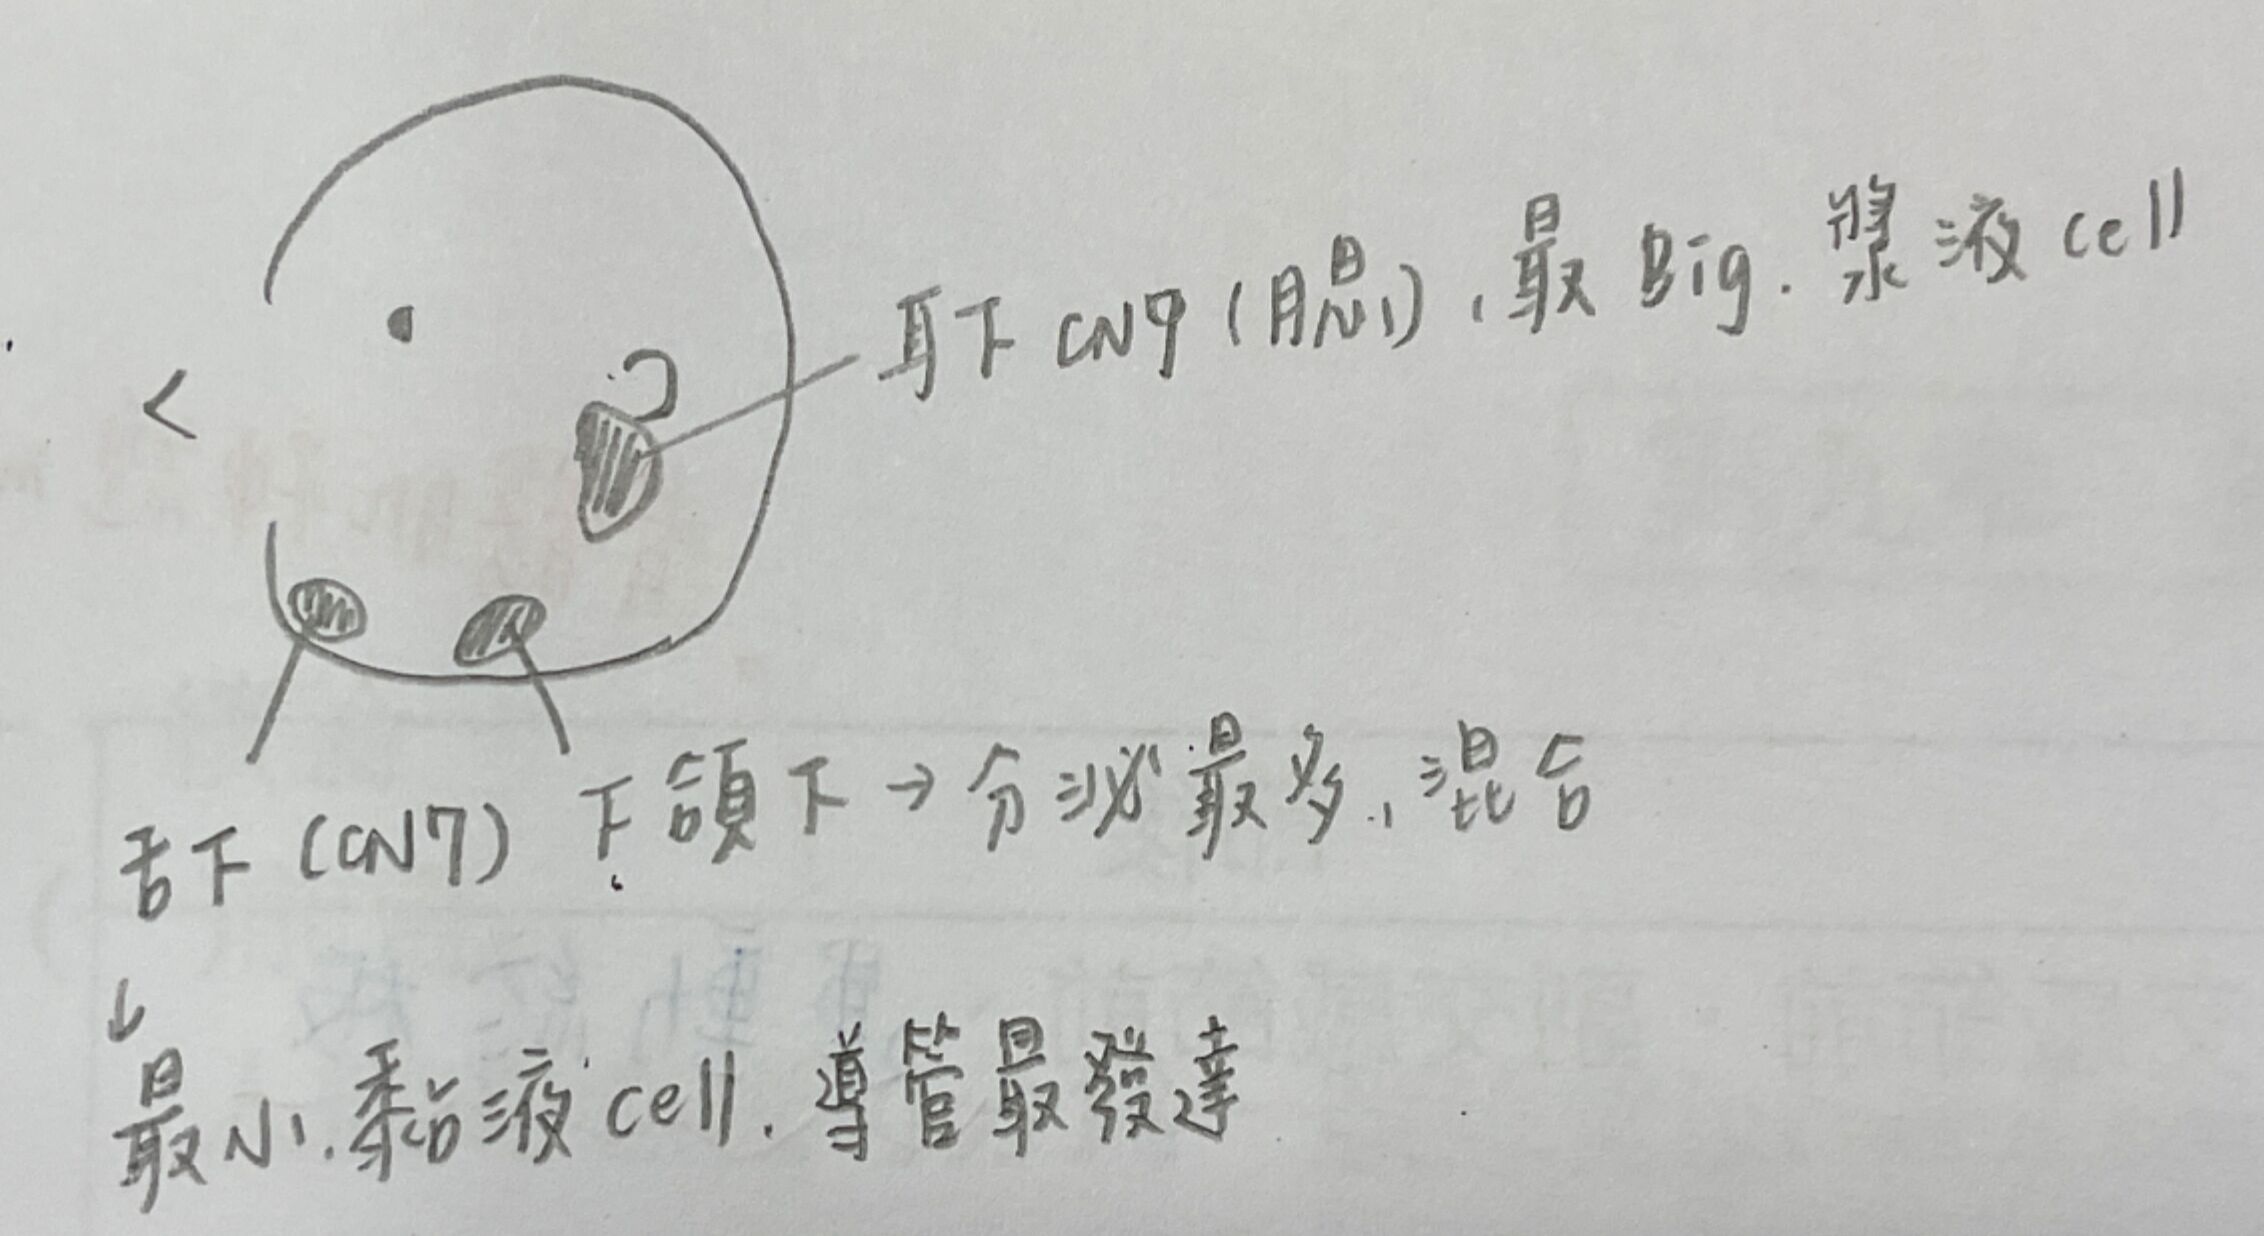 耳下 CN9 (腮), 最 Big. 漿液 cell
舌下 (CN7) 下頜下 → 分泌最多, 混合
↓
最小. 黏液 cell. 導管最發達